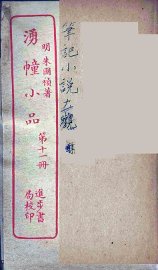 明 朱國禎著
湧幢小品
第十一冊
進步書局校印
筆記小說大觀